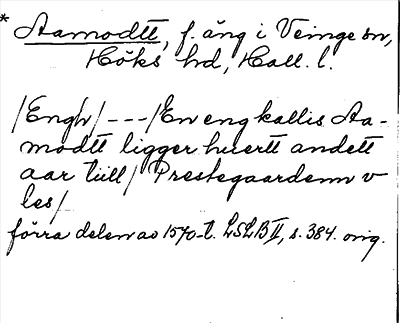 * Aamodtt, f. äng i Veinge sn,
Höks hd, Hall. l.
/Engh/ --- /En eng kallis Aa-
modtt ligger huertt andett
aar tiill / Prestegaardenn v
les/
förra delen av 1570-t. LSLB II, s. 384. orig.